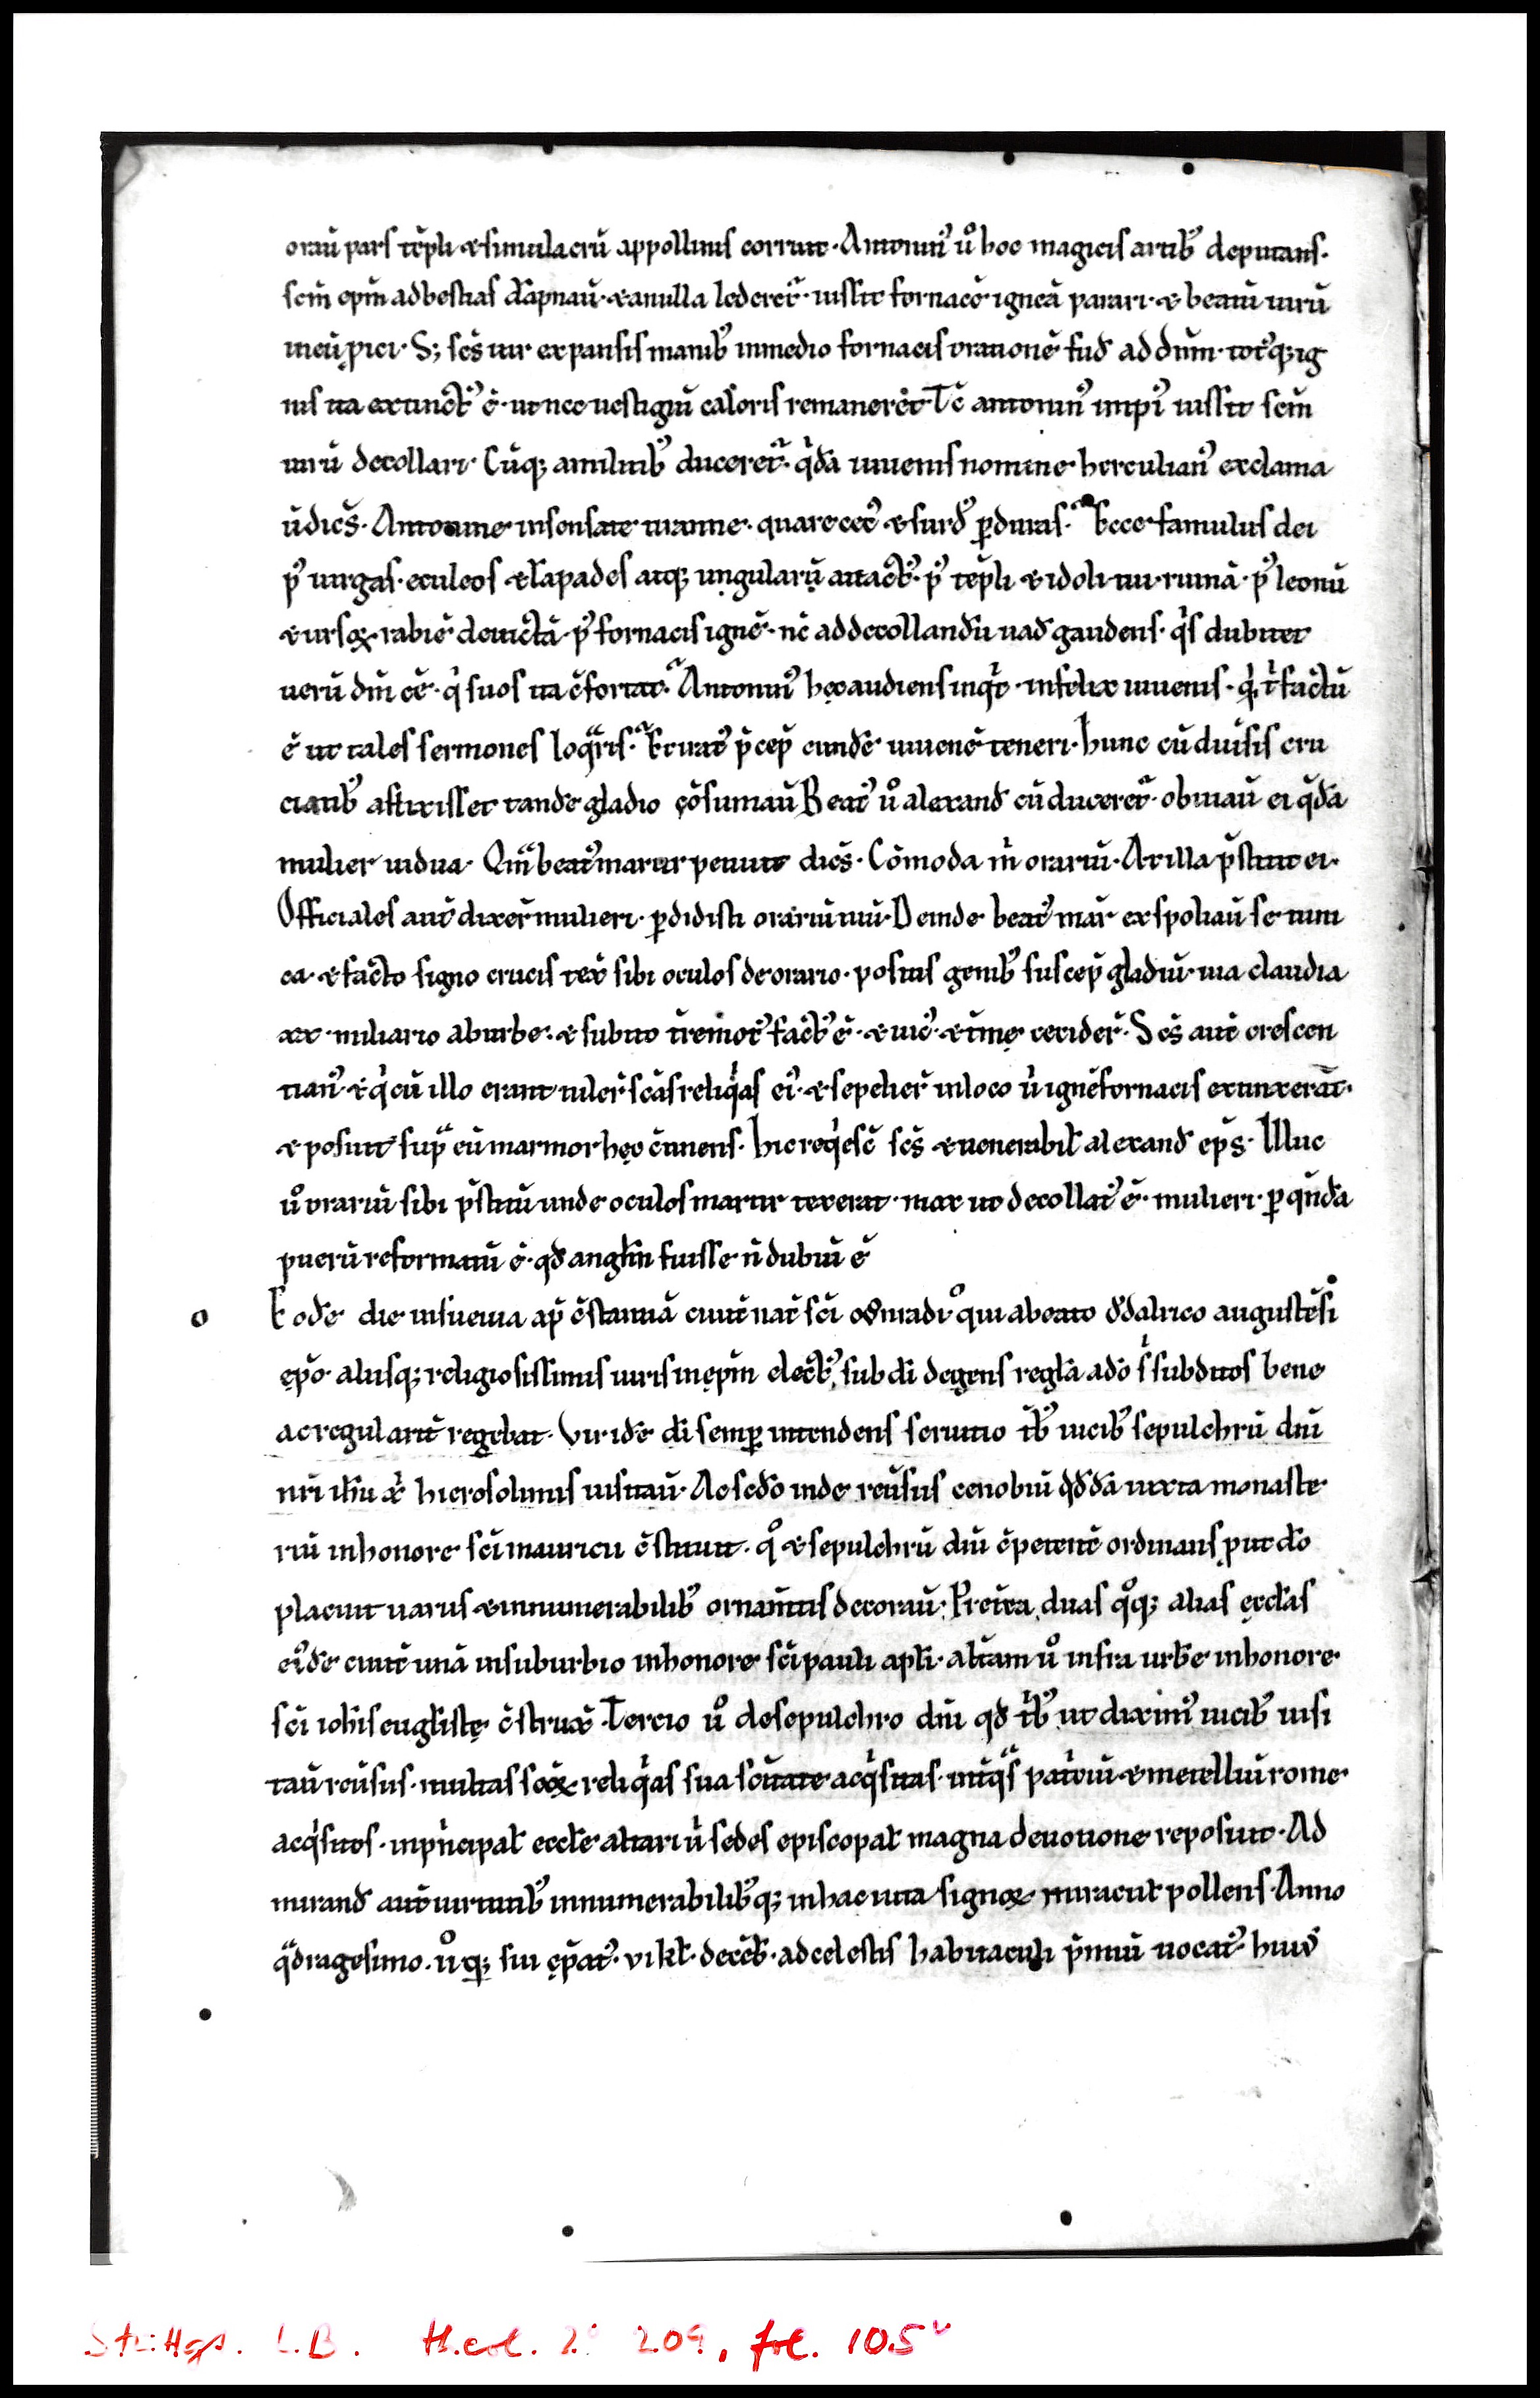 orau̅ pars te̅pli ⁊ simulacru̅ appollinis corruit · Antonin᾿ uͦ hoc magicis artib᾿ deputans ·
scm̅ epm̅ ad bestias da̅pnau̅ · ⁊ a nulla lederet᷑ · iussit fornace̅ ignea̅ parari · ⁊ beatu̅ uiru̅
in eu̅ ꝓici · S; scs̅ uir expansis manib᾿ in medio fornacis oratione̅ fud̅ ad dn̅m · tot᾿q; ig
nis ita extinct᾿ e̅ · ut nec uestigiu̅ caloris remaneret · Tc̅ antonin᾿ impi᾿ iussit scm̅
uiru̅ decollari · Cu̅q; a militib᾿ duceret᷑ · qͥda̅ iuuenis nomine herculian᾿ exclama
u̅ dice̅s · Antonine insensate tiranne · quare cec᾿ ⁊ surd᾿ ꝑduras · Ecce famulus dei
p᾿ uirgas · eculeos ⁊ la̅pades atq; ungularu̅ attact᾿ · p᾿ te̅pli ⁊ idoli tui ruina̅ · p᾿ leonu̅
⁊ ursoꝝ rabie̅ deuicta̅ · p᾿ fornacis igne̅ · nc̅ ad decollandu̅ uad̅ gaudens · qͥs dubitet
ueru̅ dm̅ ee̅ · qͥ suos ita c̅fortat · Antonin᾿ hęc audiens inqͥt · infelix iuuenis · qͥ tͥ factu̅
e̅ ut tales sermones loqͣris · Et iuat᾿ p̅cep̅ eunde̅ iuuene̅ teneri · Hunc cu̅ diu̅sis cru
ciatib᾿ aflixisset tande̅ gladio co̅sumau̅ Beat᾿ uͦ alexand̅ cu̅ duceret᷑ · obuiau̅ ei qͣda̅
mulier uidua · Qͣm beat᾿ martir petiuit dice̅s · Co̅moda mͥ orariu̅ · At illa p̅stitit ei ·
Officiales aut̅ dixer̅ mulieri · ꝑdidisti orariu̅ tuu̅ · Deinde beat᾿ mar̅ exspoliau̅ se tuni
ca · ⁊ facto signo crucis tex̅ sibi oculos de orario · positis genib᾿ suscep̅ gladiu̅ · uia claudia
xx · miliario ab urbe · ⁊ subito t̅remot᾿ fact᾿ e̅ · ⁊ uic᾿ · ⁊ t̅mę cecider̅ · Scs̅ aut̅ crescen
tian᾿ · ⁊ qͥ cu̅ illo erant tuler̅ sca̅s reliqͥas ei᾿ · ⁊ sepelier̅ in loco uͥ igne̅ fornacis extinxera̅t ·
⁊ posuit supͣ eu̅ marmor hęc c̅tinens · Hic reqͥesc̅ scs̅ ⁊ uenerabil̅ alexand̅ ep̅s · Illuc
uͦ orariu̅ sibi p̅stitu̅ unde oculos martir texerat · mox ut decollat᾿ e̅ · mulieri · ꝑ qu̅da̅
pueru̅ reformatu̅ e̅ · qd̅ anglm̅ fuisse n̅ dubiu̅ e̅
o Eode̅ die in sueuia ap̅ c̅stantia̅ ciuit̅ nat̅ sci̅ counradi · qui a beato oͮdalrico auguste̅si
ep̅o · aliisq; religiosissimis uiris in ep̅m elect᾿ · sub di̅ degens regl̅a ado̅ sͥ subditos bene
ac regularit̅ regebat · Vir ide̅ di̅ semꝑ intendens seruitio tͥb᾿ uicib᾿ sepulchru̅ dn̅i
nr̅i ih̅u xͥ hierosolimis uisitau̅ · Ac sc̅do inde reu̅sus cenobiu̅ qd̅da̅ iuxta monaste
riu̅ in honore sci̅ mauricii c̅stituit · qͦ ⁊ sepulchru̅ dn̅i c̅petent̅ ordinans ꝓut do̅
placuit uariis ⁊ innumerabilib᾿ ornam̅tis decorau̅ · Pret̅ea duas qͦq; alias eccl̅as
ei᾿de̅ ciuit̅ una̅ in suburbio in honore sci̅ pauli apl̅i · alt̅am uͦ infra urbe̅ in honore
sci̅ ioh̅is eugl̅istę c̅strux̅ · Tercio uͦ de sepulchro dn̅i qd̅ tͥb᾿ ut dixim᾿ uicib᾿ uisi
tau̅ reu̅sus · multas scoꝝ̅ reliqͥas sua sc̅itate acqͥsitas · int̅ qͣs pat̅niu̅ · ⁊ metelliu̅ rome
acqͥsitos · in pͥncipal̅ eccl̅e altari uͥ sedes episcopal̅ magna deuotione reposuit · Ad
mirand̅ aut̅ uirtutib᾿ innumerabilib᾿q; in hac uita signoꝝ miracul̅ pollens · Anno
qͣdragesimo · iiͦ q; sui ep̅at᾿ · vi kl̅ · dece̅b̅ · ad celestis habitaculi p̅miu̅ uocat᾿ · hui᾿
Stuttgt. L.B. theol. 2° 209, fol. 105ᵛ